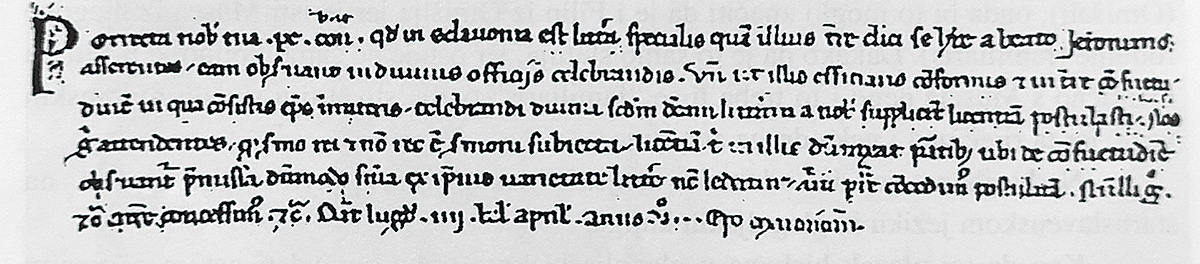 Porrecta nob tua . pe . con . qd in sclavonia est lira specialis quā illius tre clici se hre a beato Jeronimo
asserentes eam obseruant in diuinis officijs celebrandis . Vn ut illis efficiaris cōformis 7 in tre cōsuetu-
dinē in qua cōsistis eps imiteris celebrandi diuina scdm dcam litteram a nob supplicit licentiā postulasti . Nos
g attendentes q smo rei 7 nō res ē smoni subiecta licētiā t in illis dūtaxat ptib ubi de cōsuetudine
obseruant pmissa dūmodo snia ex ipsius uarietate litte nō ledatur auct pn cōcedim postulatā . nulli g .
nre concessionis 7c . Dat lugd . iiij . kl april . anno